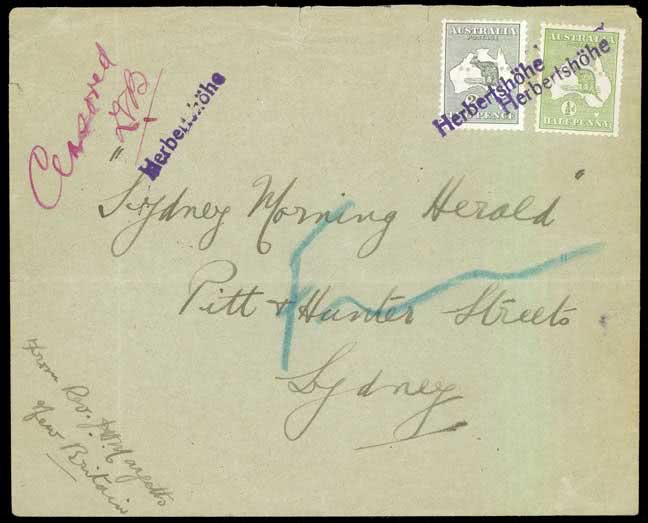 Censored
Herbertshöhe
AUSTRALIA
POSTAGE
PENCE
AUSTRALIA
½d
HALFPENNY
Herbertshöhe
Herbertshöhe
"Sydney Morning Herald"
Pitt & Hunter Streets
Sydney
From Rev. Margetts
New Britain